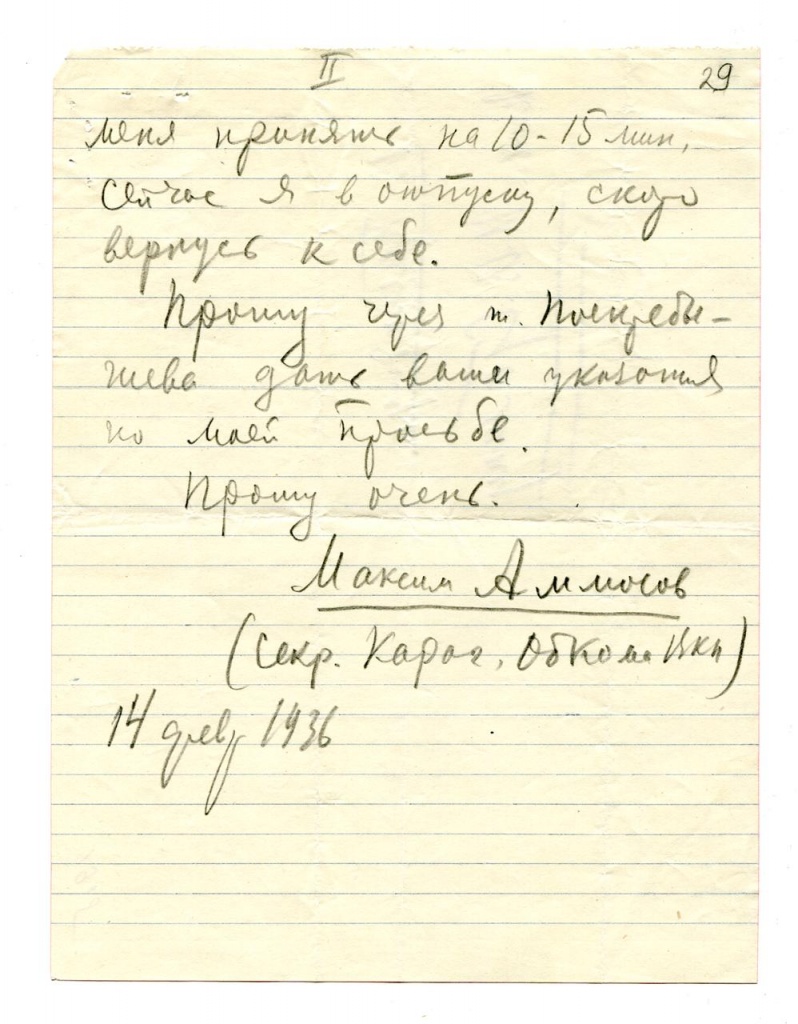 II
29
меня принять на 10-15 мин,
сейчас я в отпуску, скоро
вернусь к себе.
Прошу через т. Поскребы-
шева дать ваши указания
по моей просьбе.
Прошу очень.
Максим Аммосов
(Секр. Караг. Обкома ВКП)
14 февр 1936